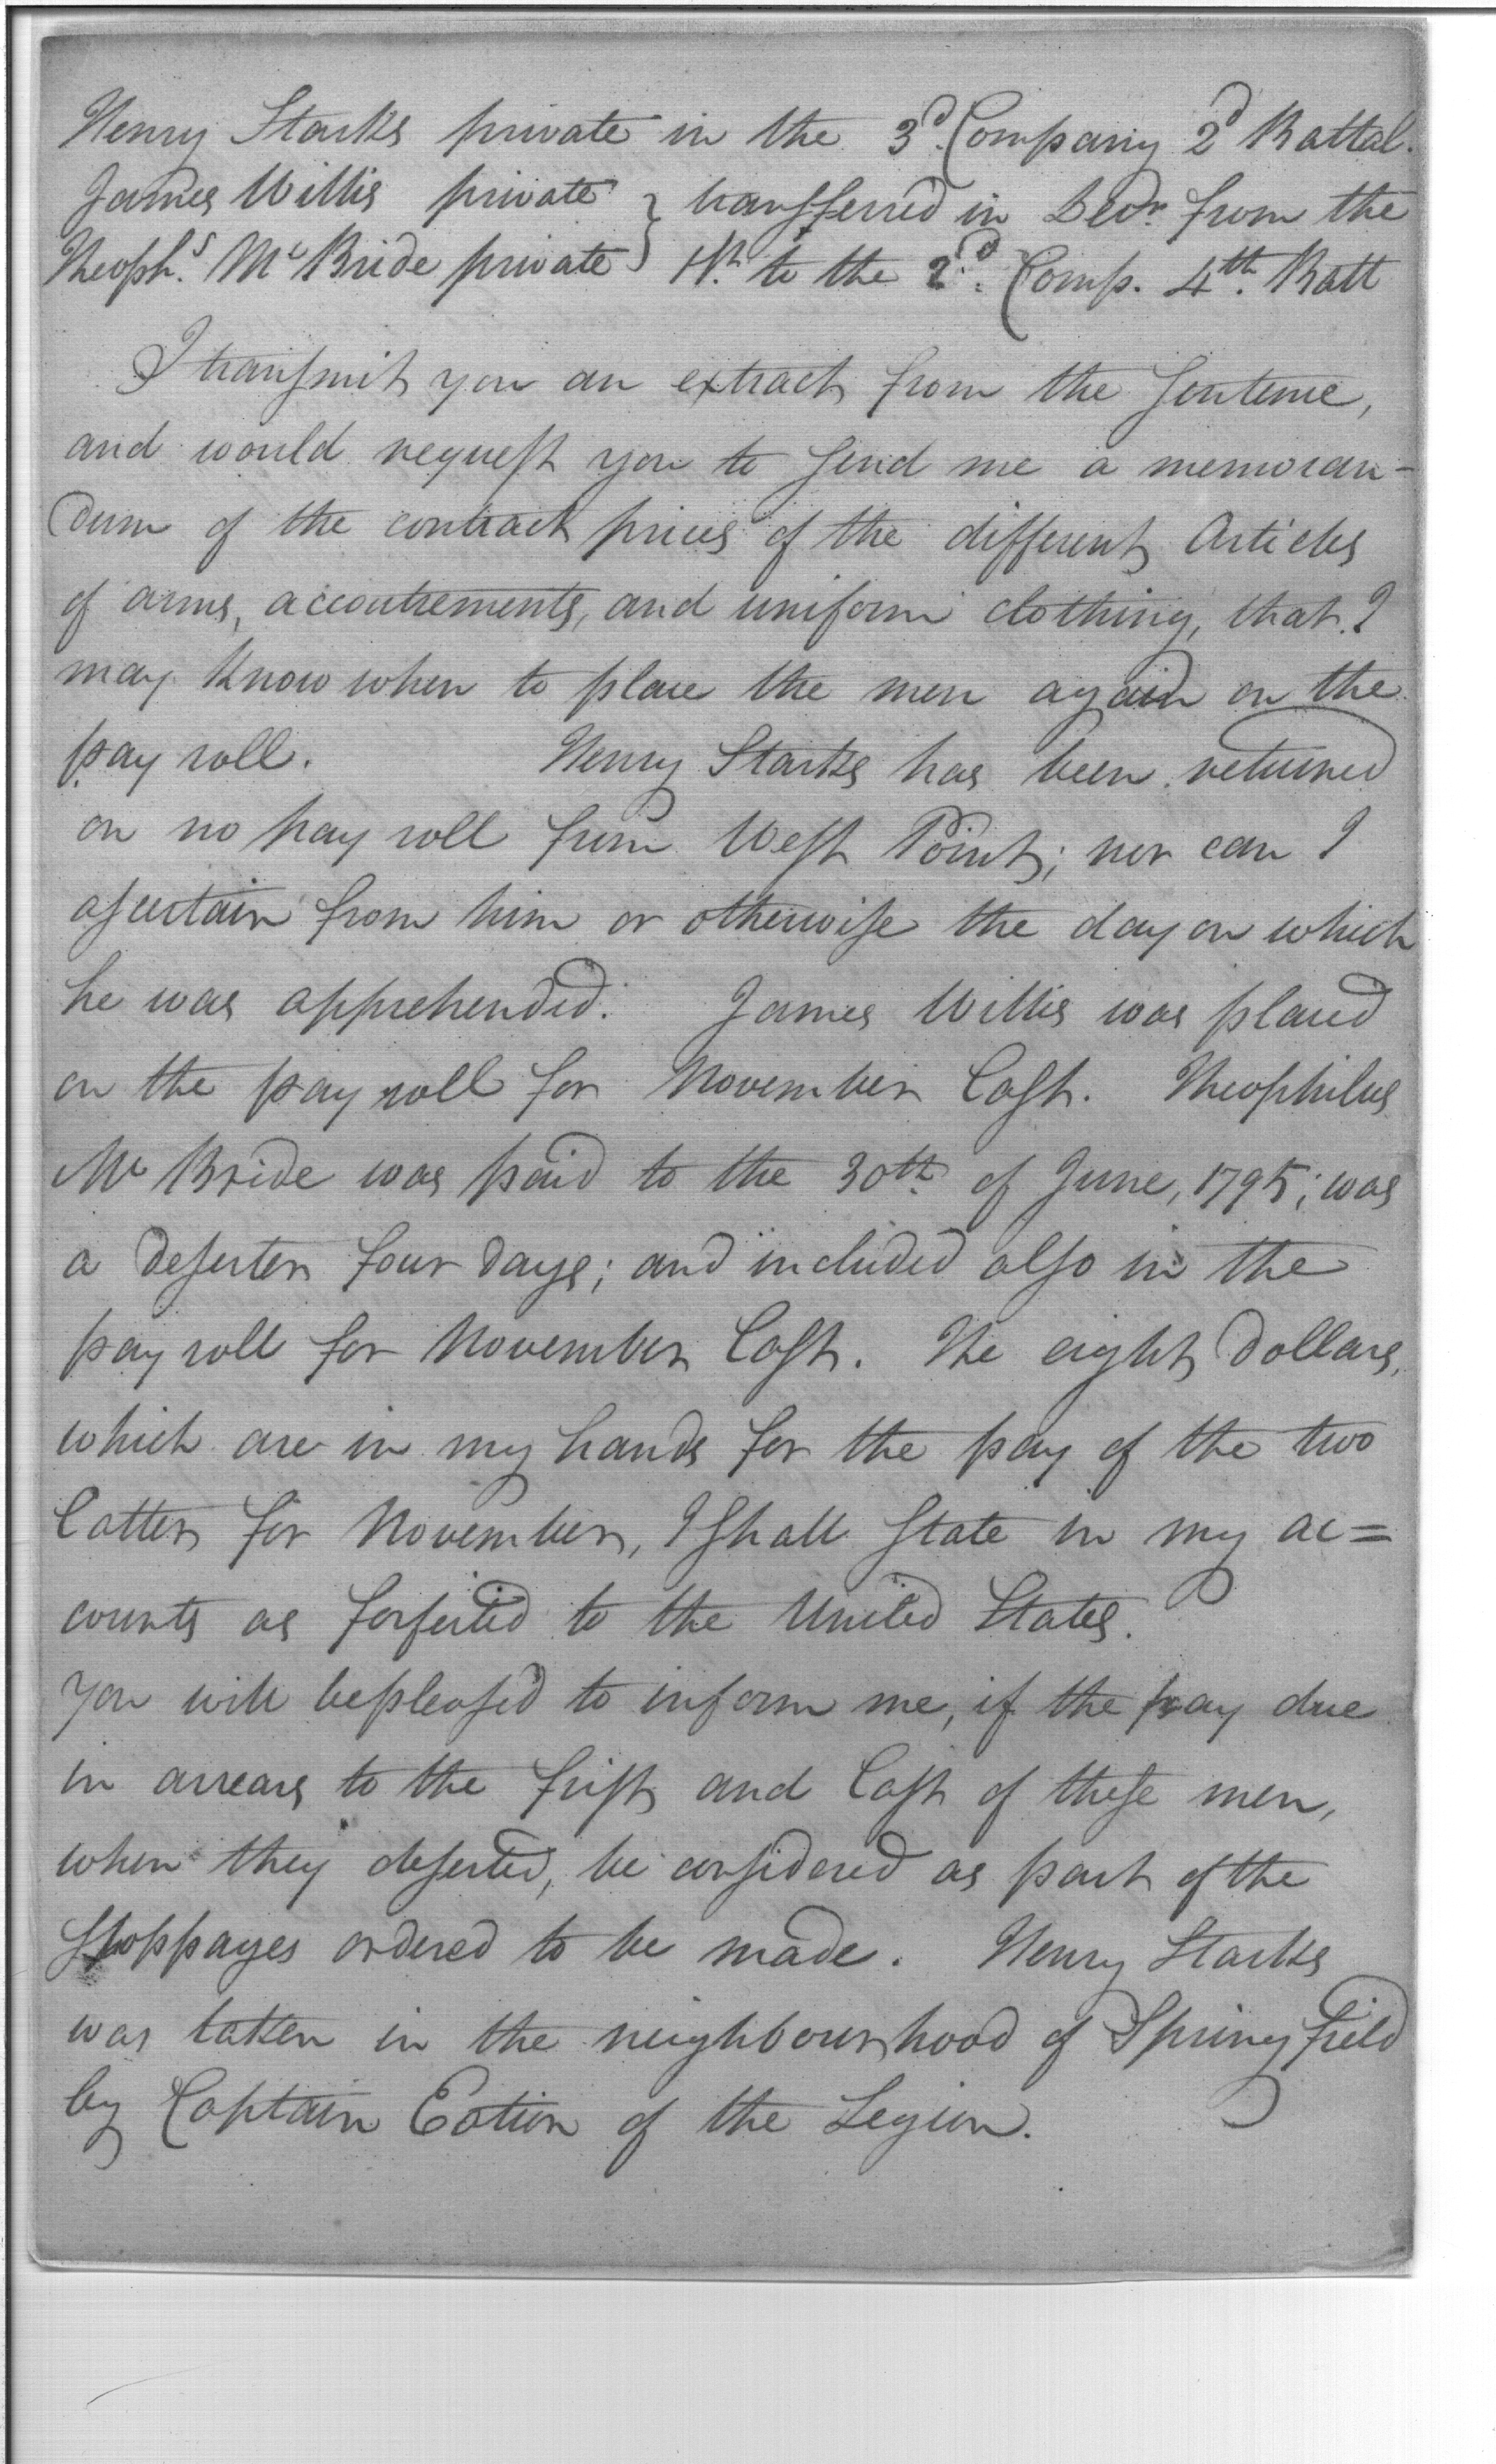 Henry Starks private in the 3d. Company 2d Battal.
James Willis private } transferred in Decr. from the
Theophs. Mc Bride private } 1st. to the 2d. Comp. 4th. Batt
I transmit you an extract from the sentence,
and would request you to send me a memoran-
dum of the contract prices of the different Articles
of arms, accoutrements, and uniform clothing, that I
may know when to place the men again on the
pay roll. Henry Starks has been returned
on no pay roll from West Point; nor can I
ascertain from him or otherwise the day on which
he was apprehended. James Willis was placed
on the pay roll for November last. Theophilus
Mc Bride was paid to the 30th. of June, 1795; was
a Deserter four days; and included also in the
pay roll for November last. The eight Dollars,
which are in my hands for the pay of the two
latter for November, I shall state in my ac=
counts as forfeited to the United States.
You will be pleased to inform me, if the pay due
in arrears to the first and last of these men,
when they deserted, be considered as part of the
stoppages ordered to be made. Henry Starks
was taken in the neighbourhood of Springfield
by Captain Eation of the Legion.